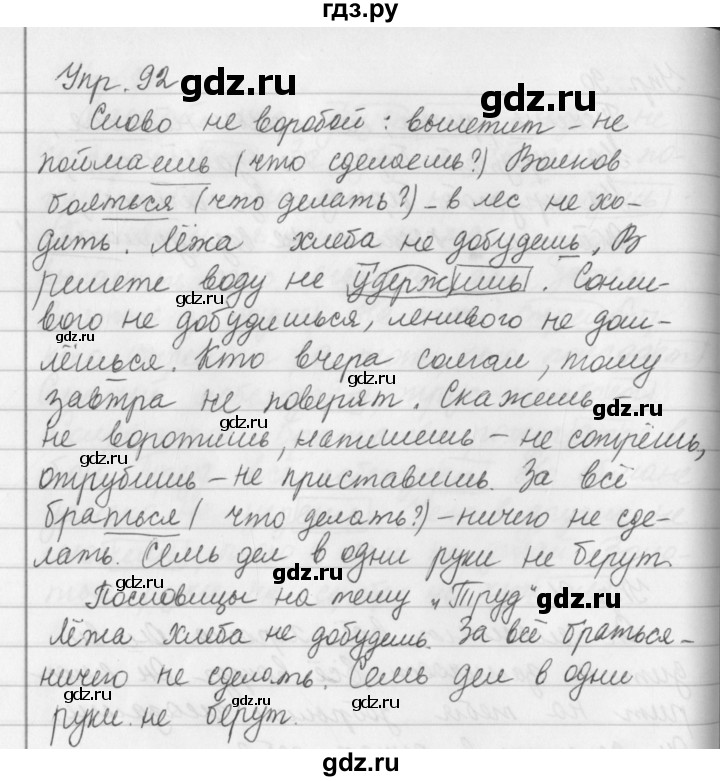 гдз.ру
Упр. 92 gdz.ru
gdz.ru
Слово не воробей: вылетит – не
поймаешь (что сделаешь?) Волков
gdz.ru gdz.ru
бояться (что делать?) – в лес не хо-
дить. Лёжа хлеба не добудешь. В
решете воду не удержишь. Сонли-
gdz.ru gdz.ru
вого не добудишься, ленивого не дош-
gdz.ru
лёшься. Кто вчера солгал, тому
gdz.ru
завтра не поверят. Скажешь –
gdz.ru
не воротишь, напишешь – не сотрёшь,
gdz.ru
отрубишь – не приставишь. За всё
gdz.ru
браться (что делать?) – ничего не сде-
лать. Семь дел в одни руки не берут.
gdz.ru gdz.ru
Пословицы на тему „Труд“
gdz.ru
Лёжа хлеба не добудешь. За всё браться –
ничего не сделать. Семь дел в одни
gdz.ru gdz.ru
руки не берут.
gdz.ru gdz.ru